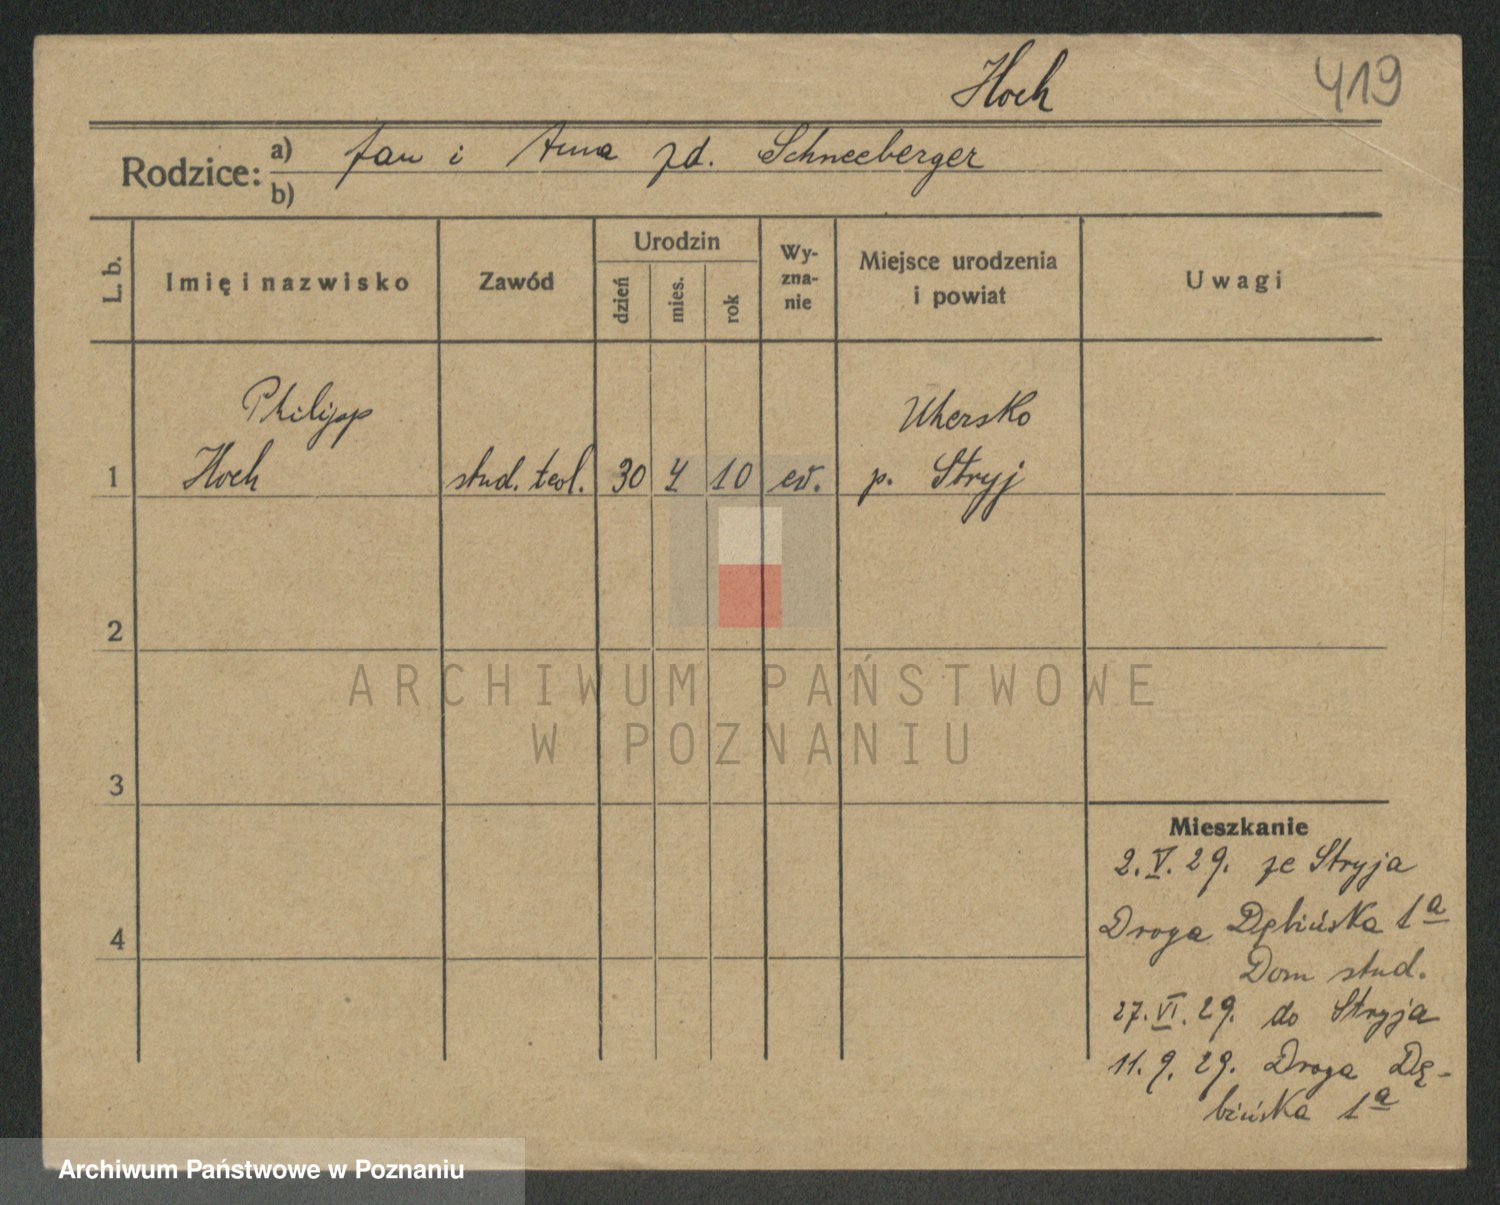 Hoch 419
Rodzice:
a) Jan i Anna zd. Schneeberger
b)
L. b.
Imię i nazwisko
Zawód
Urodzin
dzień
mies.
rok
Wy-
zna-
nie
Miejsce urodzenia
i powiat
Uwagi
Philipp
Hoch
1
stud. teol.
30
4
10
ew.
Uhersko
p. Stryj
2
3
4
Mieszkanie
2.V.29. ze Stryja
Droga Dębińska 1a
Dom stud.
27.VI.29. do Stryja
11.9.29. Droga Dę-
bińska 1a
ARCHIWUM PAŃSTWOWE
W POZNANIU
Archiwum Państwowe w Poznaniu